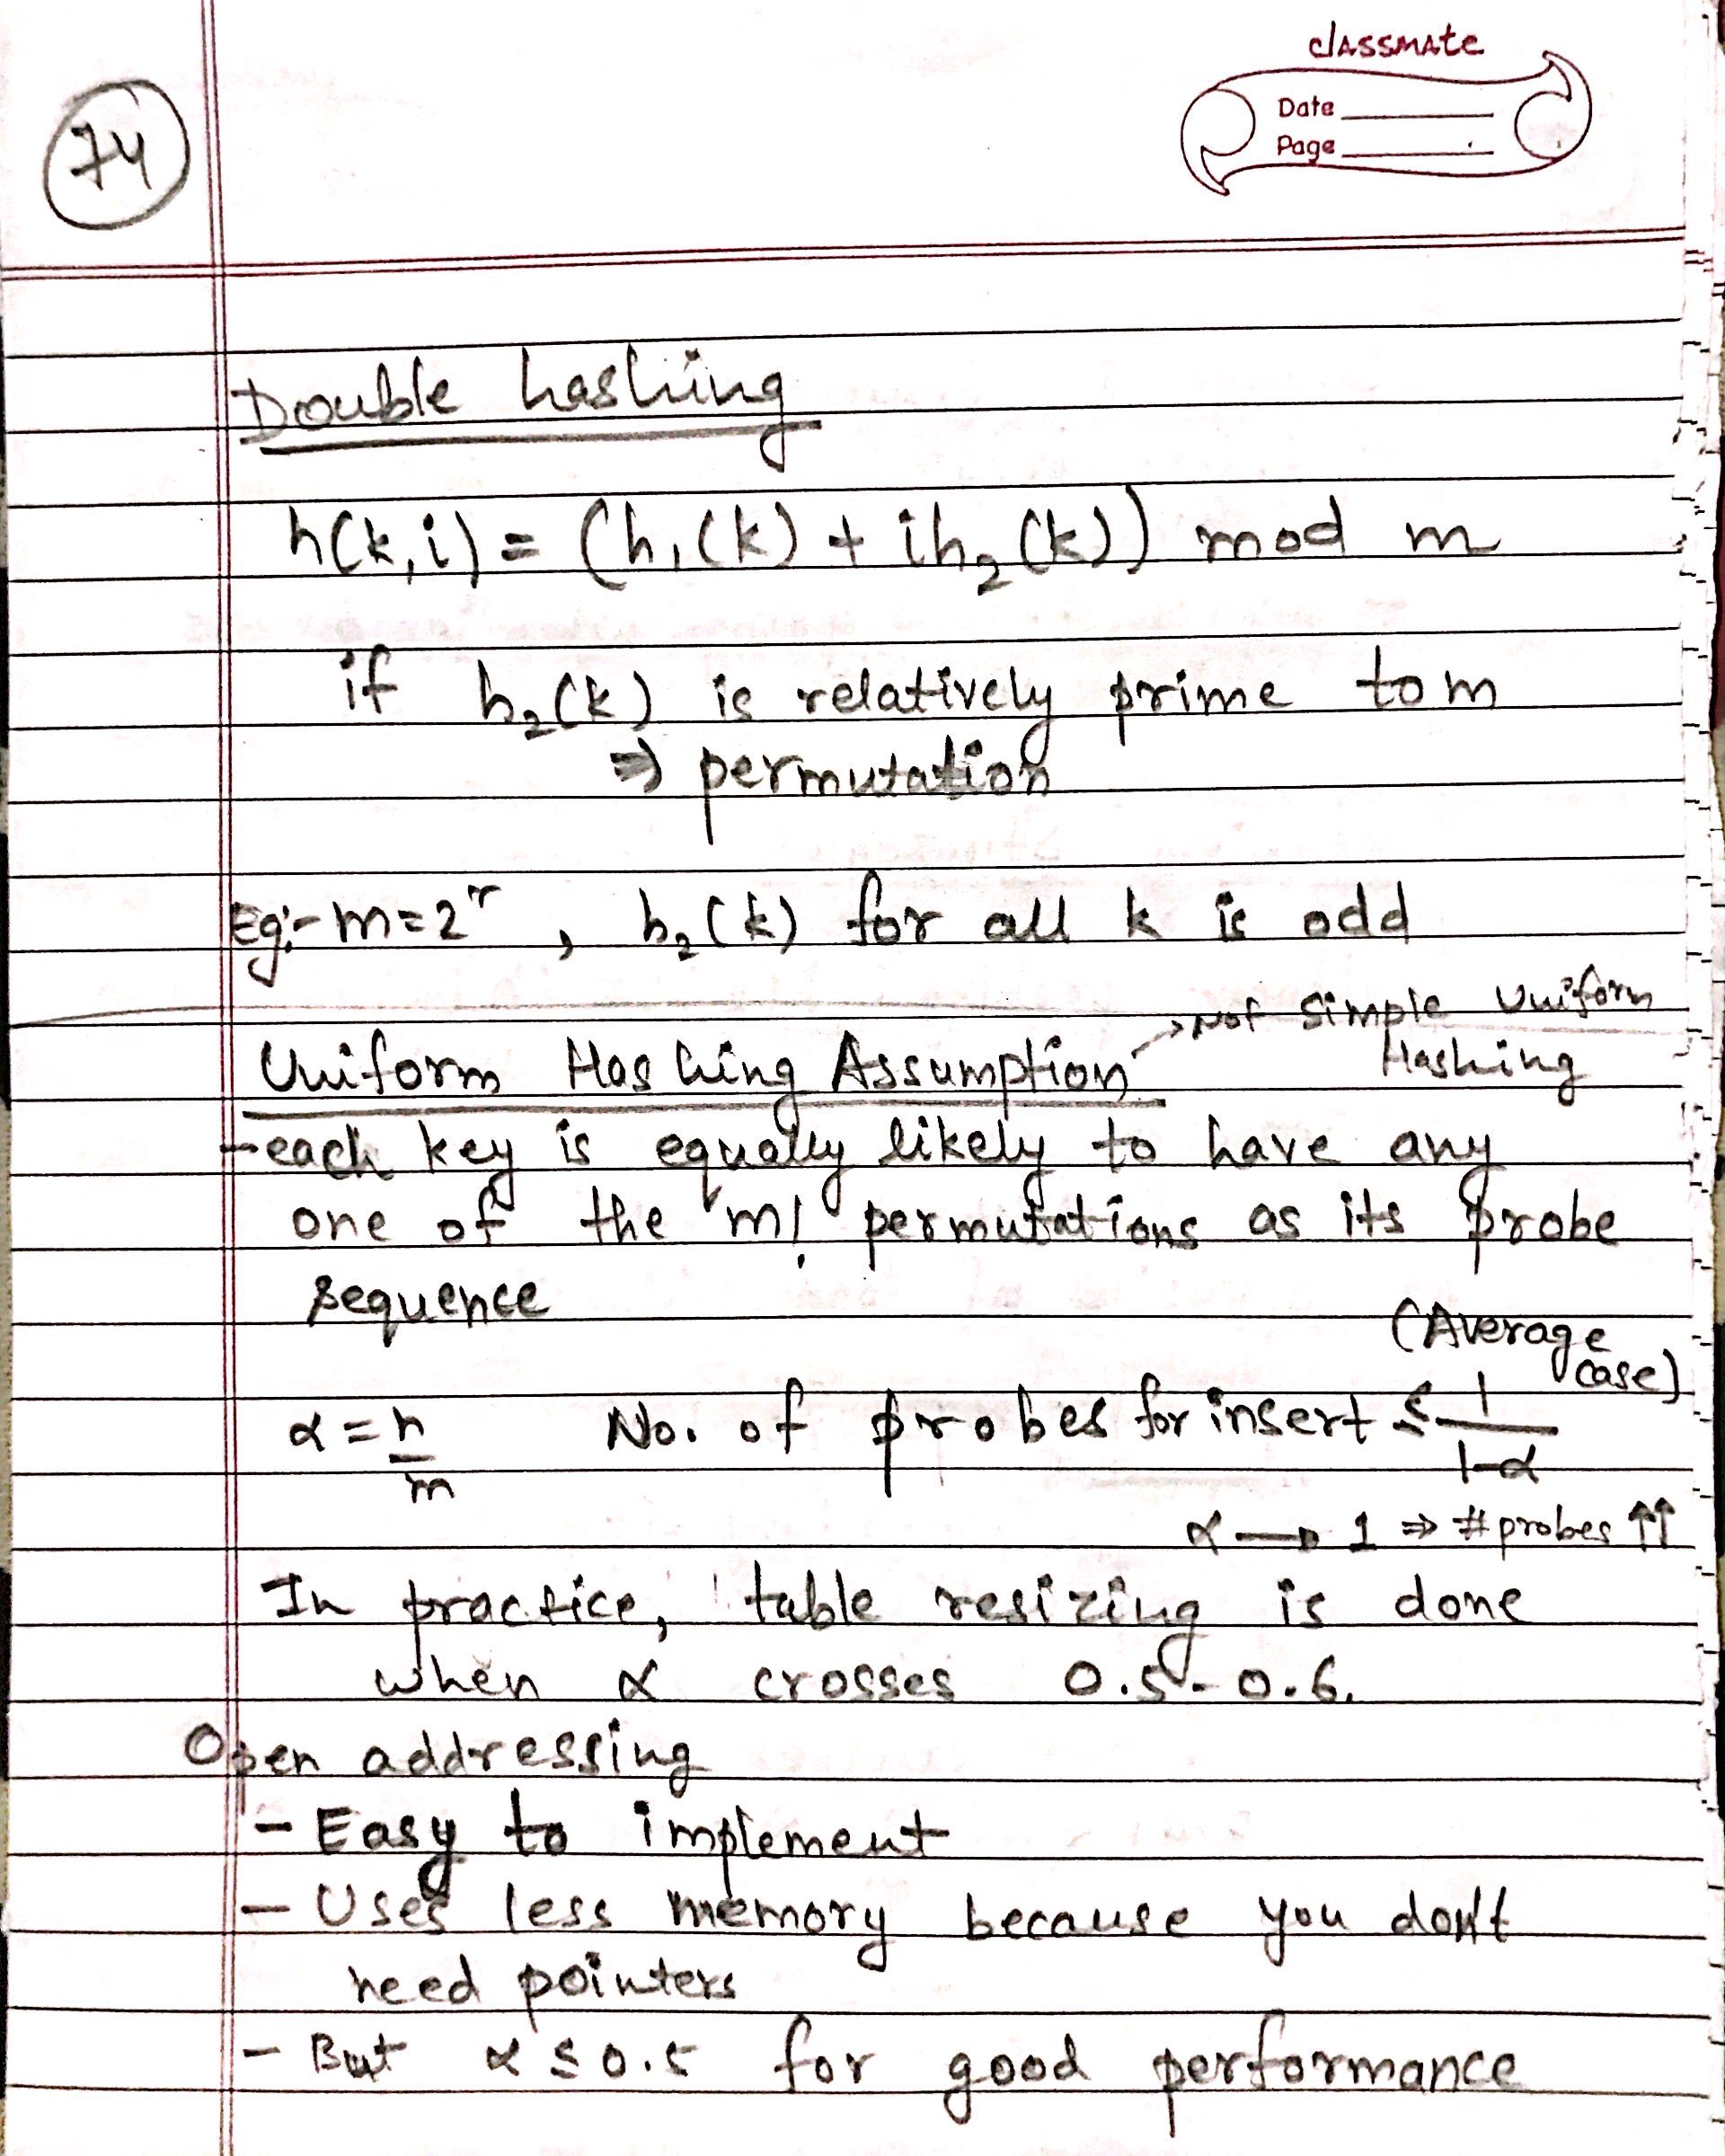 classmate
Date
Page
74
Double hashing
h(k,i) = (h₁(k) + ih₂(k)) mod m
if h₂(k) is relatively prime to m
⇒ permutation
Eg:- m=2ʳ , h₂(k) for all k is odd
→ Not Simple Uniform
Hashing
Uniform Hashing Assumption
- each key is equally likely to have any
one of the m! permutations as its probe
sequence
(Average
case)
α = n/m No. of probes for insert ≤ 1/(1-α)
α → 1 ⇒ #probes ↑↑
In practice, table resizing is done
when α crosses 0.5-0.6.
Open addressing
- Easy to implement
- Uses less memory because you don't
need pointers
- But α ≤ 0.5 for good performance